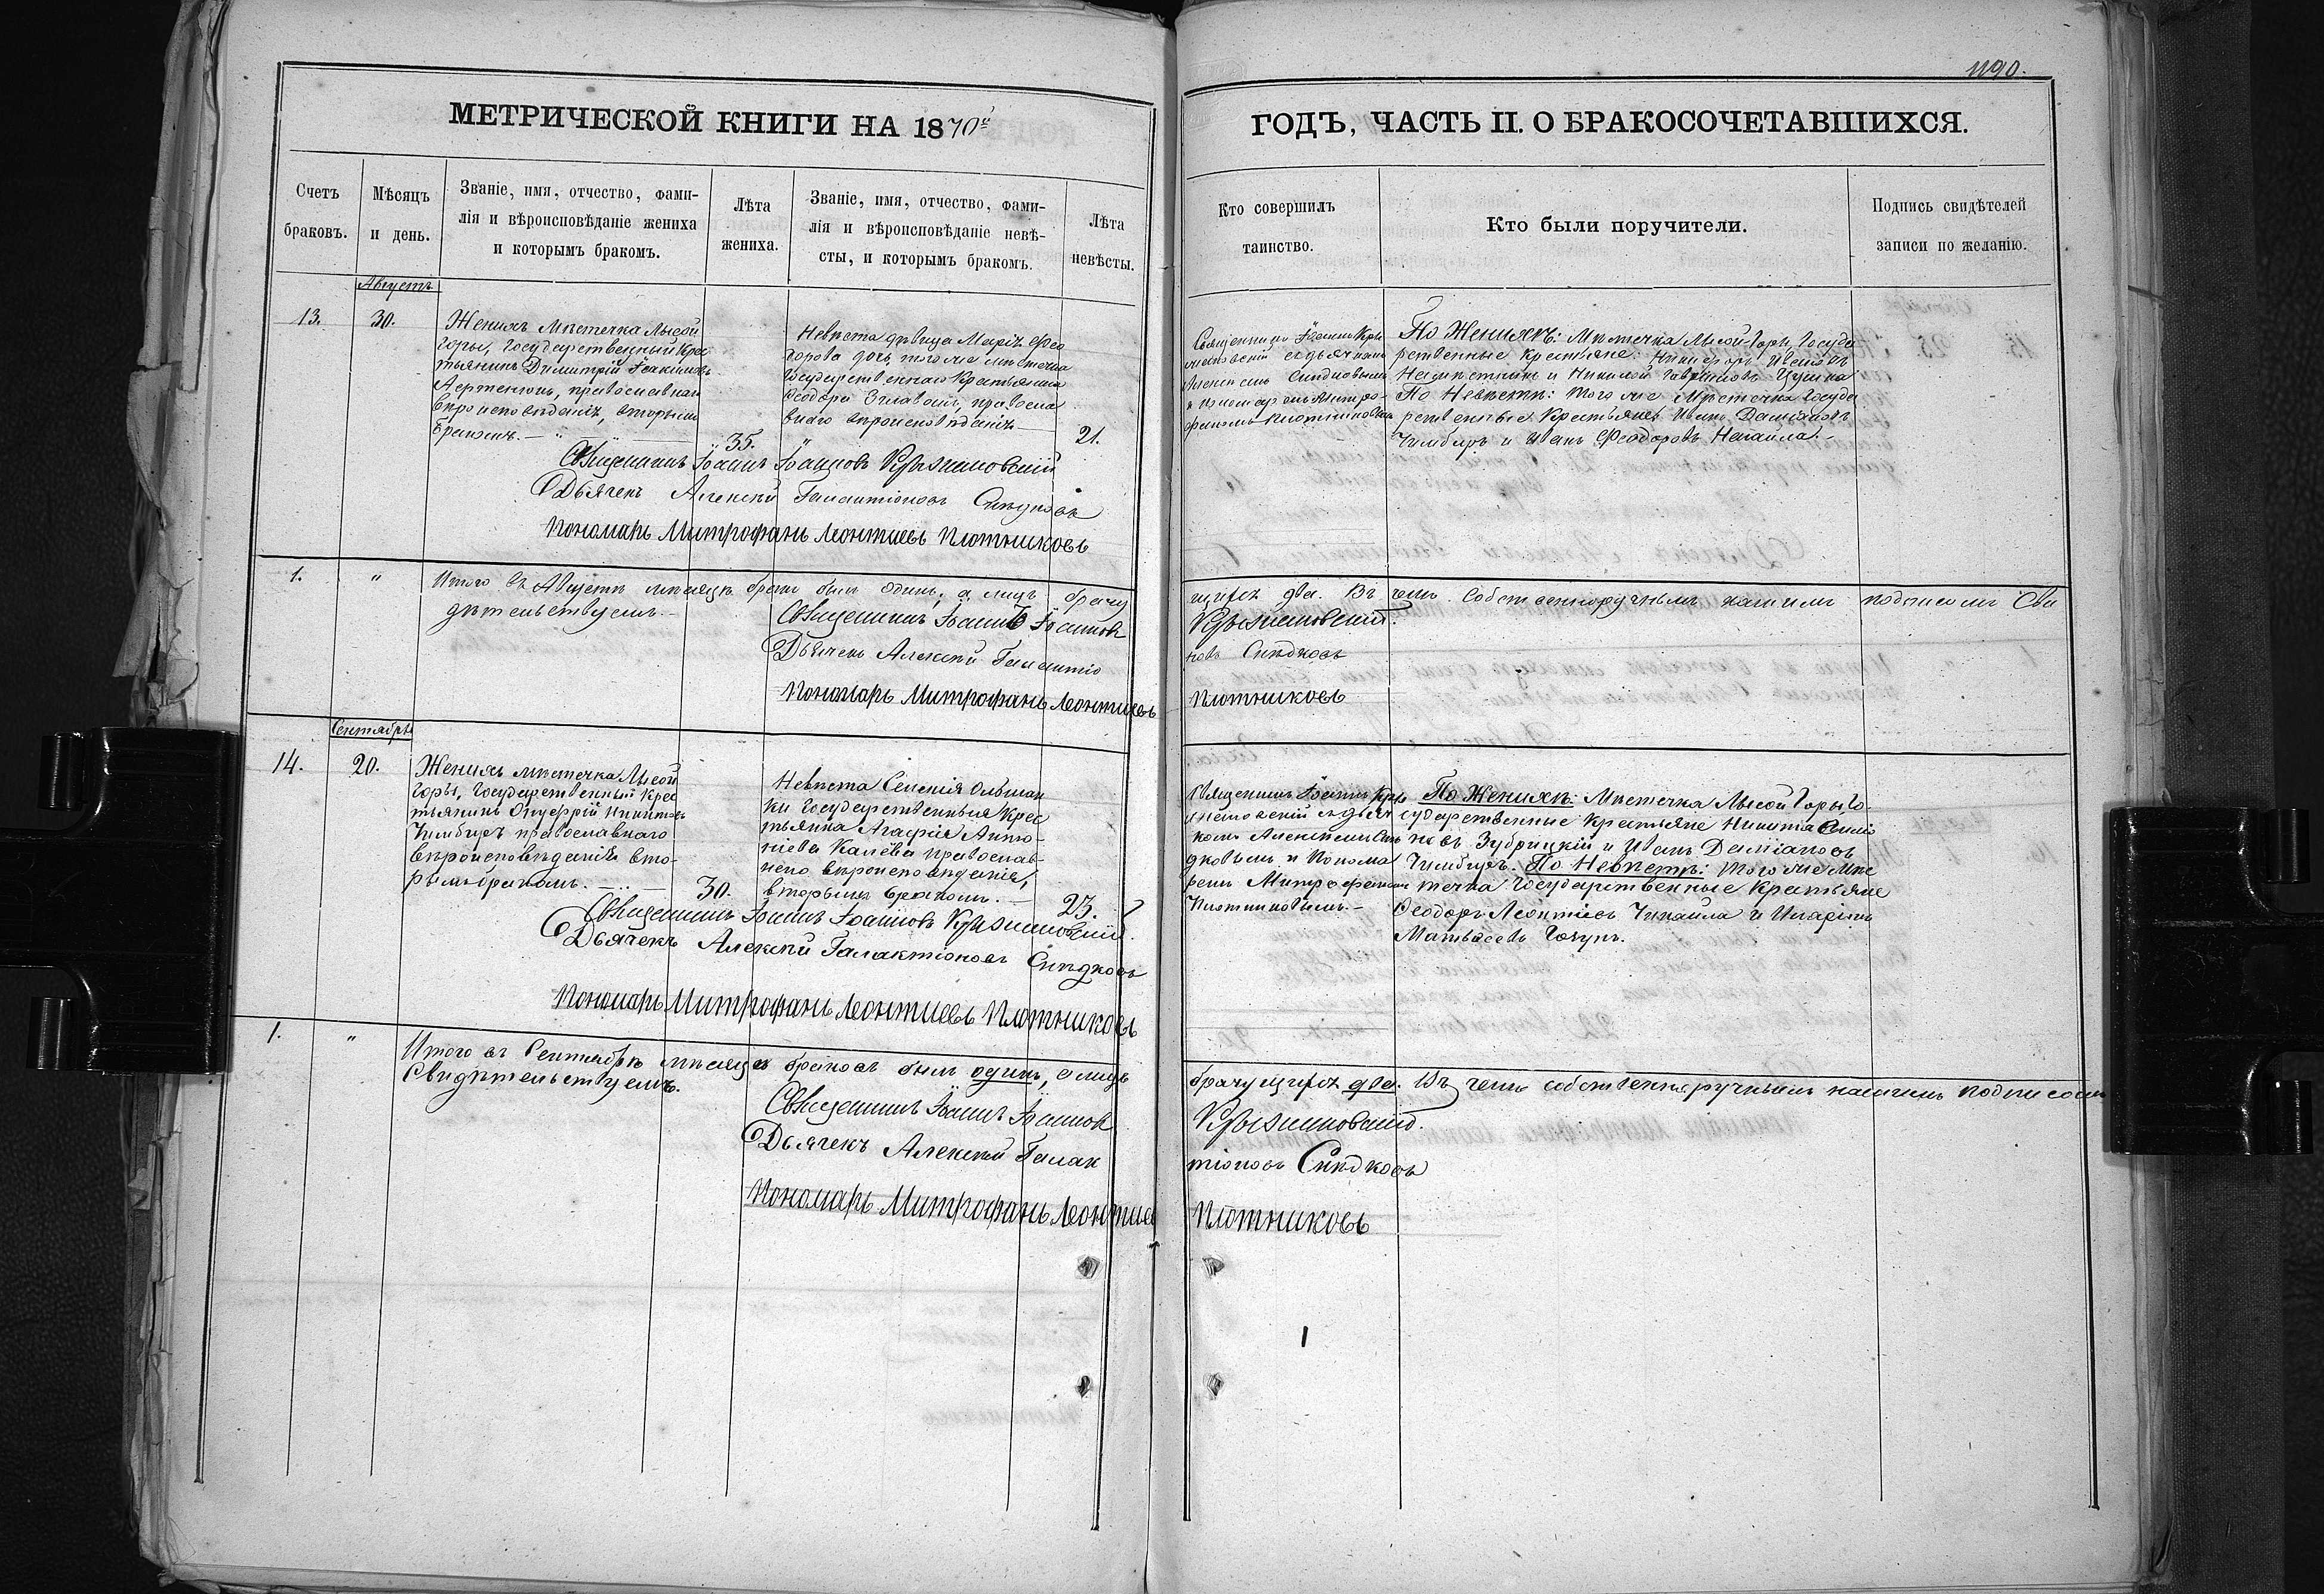 1190.
МЕТРИЧЕСКОЙ КНИГИ НА 1870й
ГОДЪ, ЧАСТЬ II. О БРАКОСОЧЕТАВШИХСЯ.
Счетъ
браковъ.
Мѣсяцъ
и день.
Званіе, имя, отчество, фами-
лія и вѣроисповѣданіе жениха
и которымъ бракомъ.
Лѣта
жениха.
Званіе, имя, отчество, фами-
лія и вѣроисповѣданіе невѣ-
сты, и которымъ бракомъ.
Лѣта
невѣсты.
Кто совершилъ
таинство.
Кто были поручители.
Подпись свидѣтелей
записи по желанію.
Августъ
13.
30.
Женихъ мѣстечка Лысой
Горы, Государственный Крес
тьянинъ Димитрій Іоакимовъ
православнаго
вѣроисповѣданія, вторымъ
бракомъ.
35.
Невѣста дѣвица Марія Ѳео
дорова дочь того же мѣстечка
Государственнаго Крестьянина
Ѳеодора правосла
внаго вѣроисповѣданія
21.
Священникъ Іоаннъ Кры
жановскій съ дьячкомъ
Алексѣемъ Слѣдковымъ
и пономаремъ Митро-
фаномъ Плотниковымъ
По Женихѣ: Мѣстечка Лысой-Горы, Госуда
рственные Крестьяне: Никифоръ Ивановъ
и Николай Гавриловъ Цушка
По Невѣстѣ: того же Мѣстечка Госуда
рственные Крестьяне Иванъ Даміановъ
Чимбиръ и Иванъ Ѳеодоровъ
Священникъ Іоаннъ Іоанновъ Крыжановскій
Дьячекъ Алексѣй Галактіоновъ Слѣдковъ
Пономарь Митрофанъ Леонтиевъ Плотниковъ
1.
"
Итого въ Августѣ мѣсяцѣ бракъ былъ одинъ, а лицъ брачу
щихся два. Въ чемъ собственноручнымъ нашимъ подписомъ Сви
дѣтельствуемъ.
Священникъ Іоаннъ Іоанновъ
Крыжановскій.
Дьячекъ Алексѣй Галактіо
новъ Слѣдковъ
Пономарь Митрофанъ Леонтиевъ
Плотниковъ
Сентябрь
14.
20.
Женихъ мѣстечка Лысой
Горы, Государственный Крес
тьянинъ Онуфрій Никитовъ
Чимбиръ православнаго
вѣроисповѣданія вто-
рымъ бракомъ.
30.
Невѣста Селенія Ольшан
ки Государственная Крес
тьянка Агафія Анто-
ніева Калёва православ-
наго вѣроисповѣданія,
вторымъ бракомъ.
23.
Священникъ Іоаннъ Кры
жановскій съ дьяч
комъ Алексѣемъ Слѣ
дковымъ и Понома
ремъ Митрофаномъ
Плотниковымъ.
По Женихѣ: Мѣстечка Лысой Горы Го
сударственные Крестьяне Никита
новъ Зубрицкій и Иванъ Даміановъ
Чимбиръ. По Невѣстѣ: того же Мѣс
течка Государственные Крестьяне
Ѳеодоръ Леонтіевъ Чикайла и Иларіонъ
Матвѣевъ
Священникъ Іоаннъ Іоанновъ Крыжановскій.
Дьячекъ Алексѣй Галактіоновъ Слѣдковъ
Пономарь Митрофанъ Леонтиевъ Плотниковъ
1.
"
Итого въ Сентябрѣ мѣсяцѣ браковъ былъ одинъ, а лицъ
брачущихся два. Въ чемъ собственноручнымъ нашимъ подписомъ
Свидѣтельствуемъ.
Священникъ Іоаннъ Іоанновъ
Крыжановскій.
Дьячекъ Алексѣй Галак
тіоновъ Слѣдковъ
Пономарь Митрофанъ Леонтиев
Плотниковъ